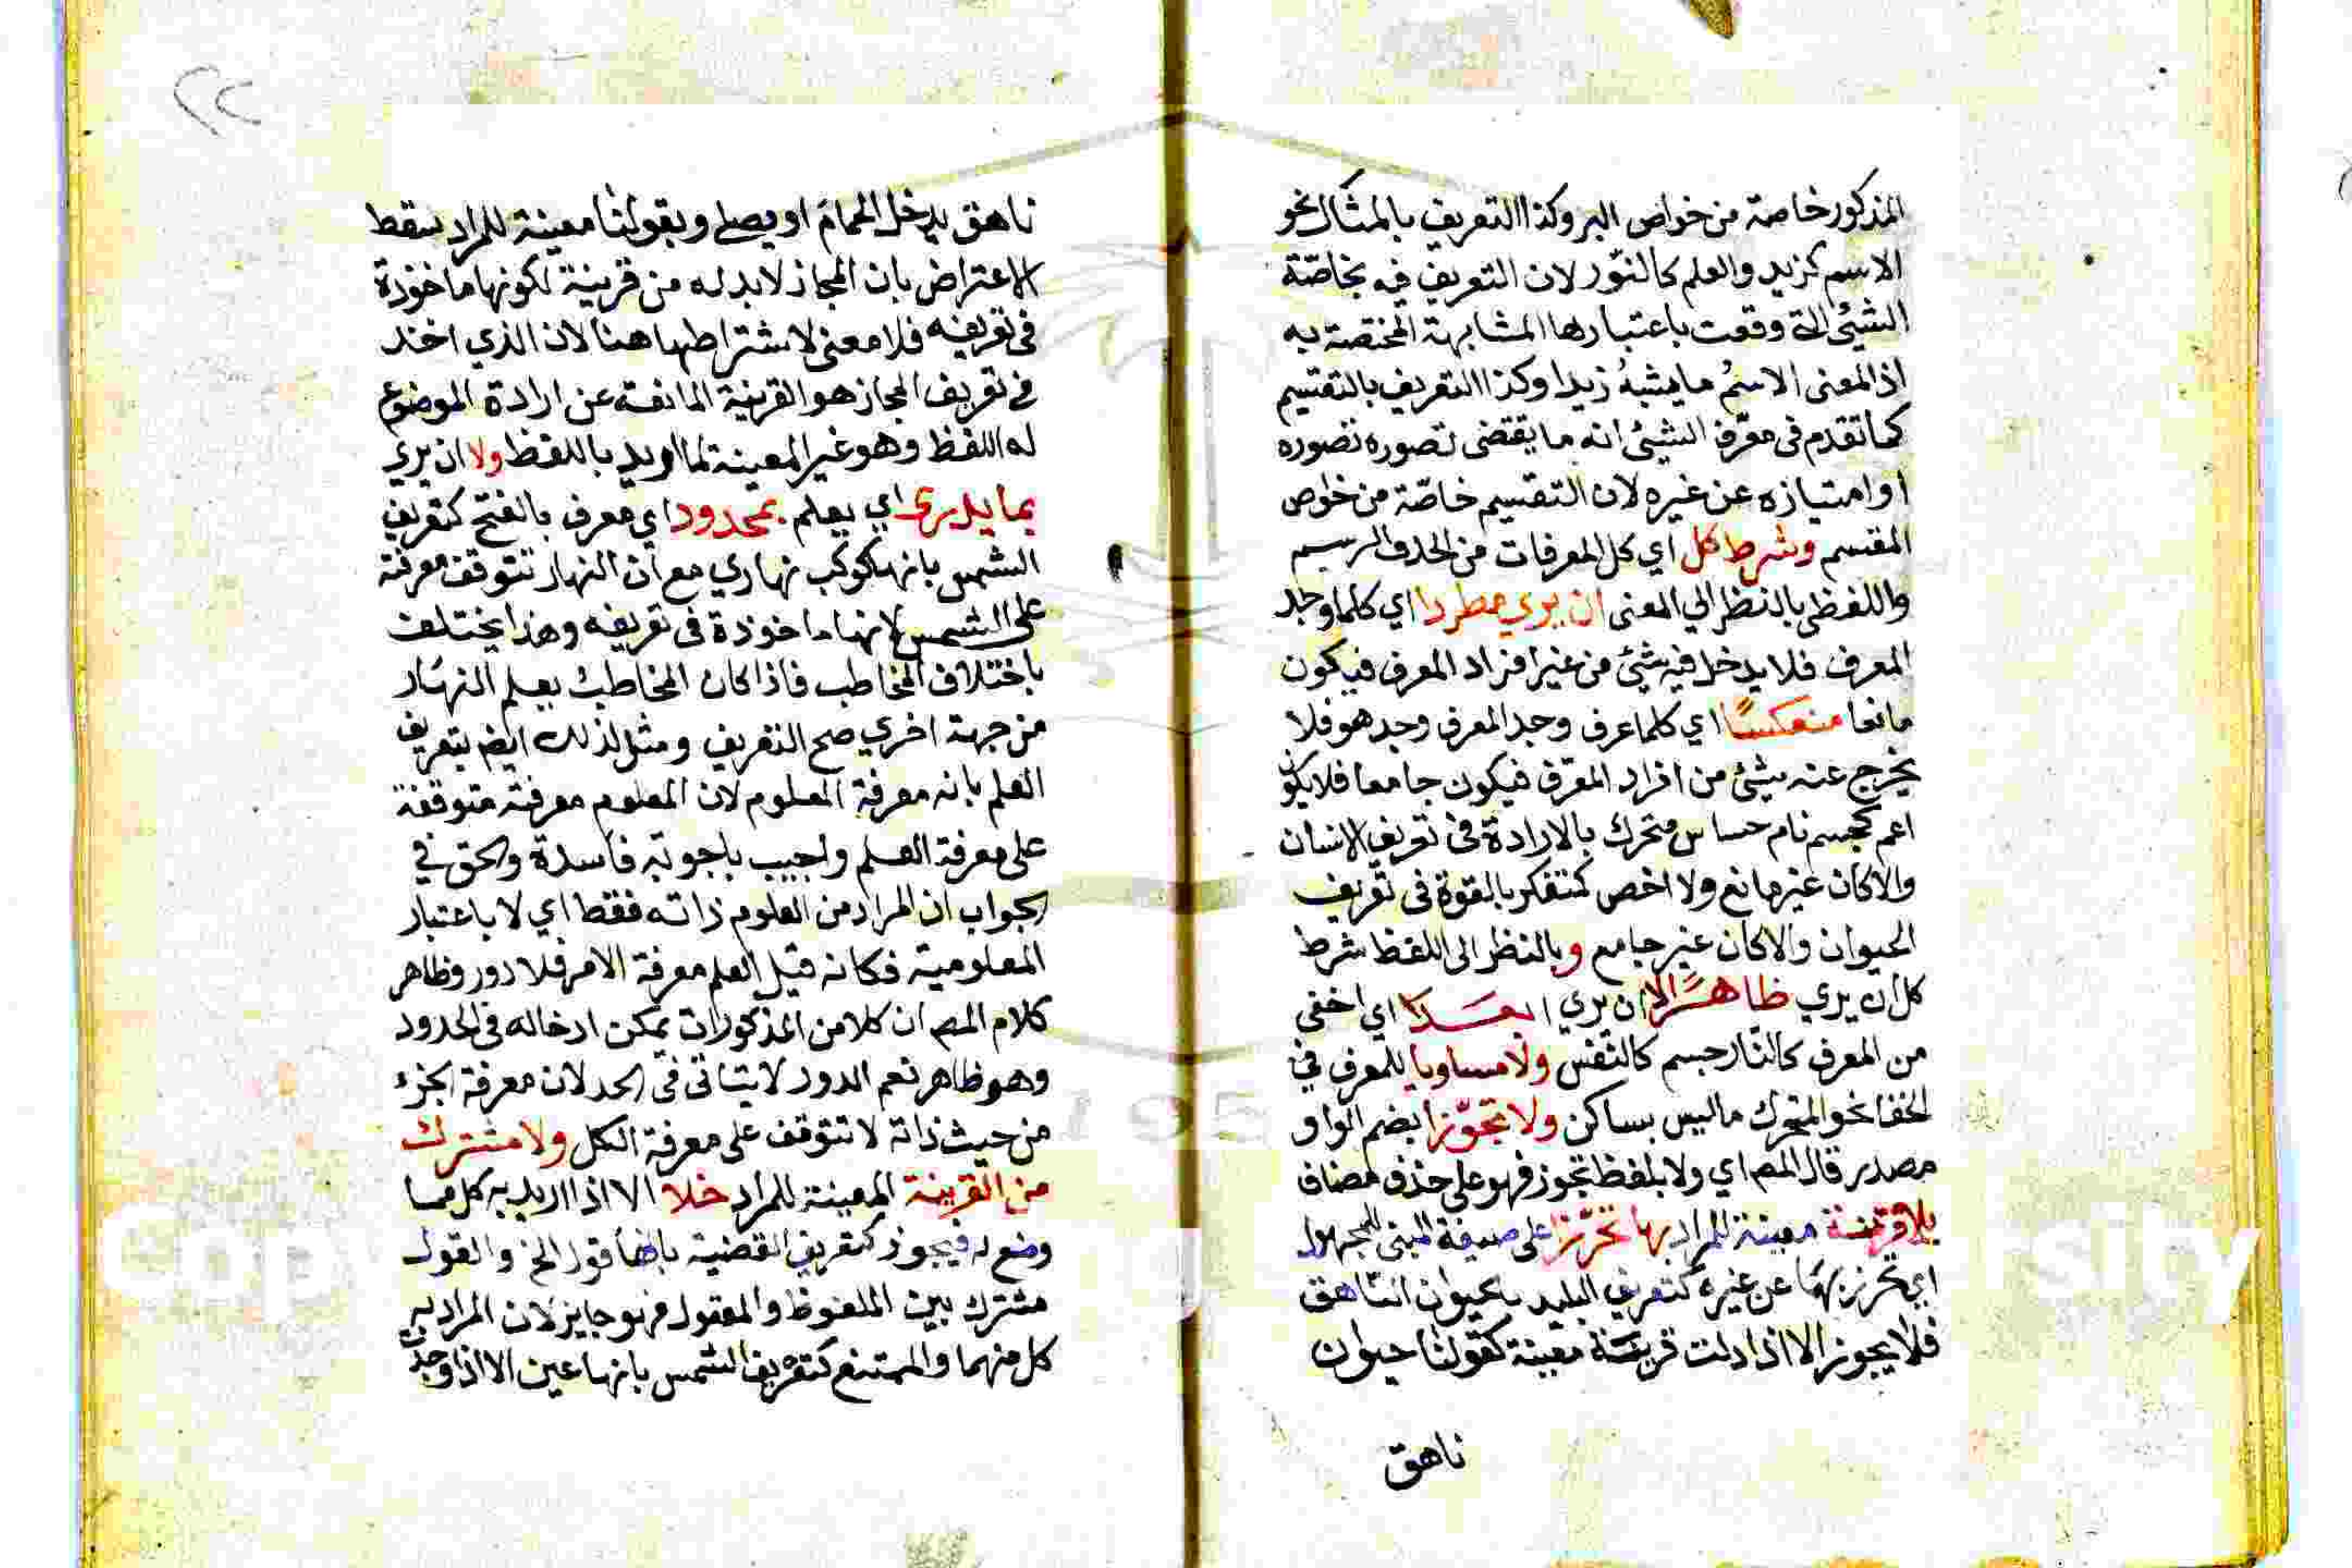 المذكور خاصة من خواص البر وكذا التعريف بالمثال نحو
الاسم كزيد والعلم كالنّور لان التعريف فيه بخاصّة
الشيئ التي وقعت باعتبارها المشابهة المختصة به
اذ المعنى الاسمُ ما يشبهُ زيدا وكذا التعريف بالتقسيم
كما تقدم في معرّف الشيئ انه ما يقتضى تصوره تصوره
او امتيازه عن غيره لان التقسيم خاصّة من خواص
المقسم وشرط كل اي كل المعرفات من الحد والرسم
واللفظى بالنظر الي المعنى ان يرى مطردا اي كلما وجد
المعرف فلا يدخل فيه شيئ من غير افراد المعرف فيكون
مانعا منعكسًا اي كلما عرف وجد المعرف وجد هو فلا
يخرج عنه شيئ من افراد المعرّف فيكون جامعا فلا يكون
اعم كجسم نام حساس متحرك بالارادة في تعريف الانسان
والا كان غير مانع ولا اخص كمتفكر بالقوة في تعريف
الحيوان والا كان غير جامع وبالنظر الى اللفظ شرط
كل ان يري ظاهرًا لا ان يري ابعدا اي اخفى
من المعرف كالنّار جسم كالنّفس ولا مساويا للمعرف في
الخفا نحو المتحرك ما ليس بساكن ولا تجوّزا بضم الواو
مصدر قال المص اي ولا بلفظ تجوز فهو على حذف مضاف
بلا قرينة معينة للمراد بها تحرّزا على صيغة المبنى للمجهول
اي تحرز بها عن غيره كتعريف البليد بالحيوان النّاهق
فلا يجوز الا اذا دلت قرينة معينة كقولنا حيوان
ناهق
ناهق يدخل الحمام او يصلي وبقولنا معينة للمراد سقط
الاعتراض بان المجاز لا بد له من قرينة لكونها ماخوذة
في تعريفه فلا معنى لاشتراطها هنا لان الذي اخذ
في تعريف المجاز هو القرينة المانعة عن ارادة الموضوع
له اللفظ وهو غير المعينة لما اريد باللفظ ولا ان يري
بما يدرى اي يعلم بمحدود اي معرف بالفتح كتعريف
الشمس بانها كوكب نهاري مع ان النهار تتوقف معرفته
على الشمس لانها ماخوذة في تعريفه وهذا يختلف
باختلاف المخاطب فاذا كان المخاطب يعلم النهار
من جهة اخري صح التعريف ومثل لذلك ايضا بتعريف
العلم بانه معرفة المعلوم لان المعلوم معرفته متوقفة
على معرفة العلم واجيب باجوبة فاسدة والحق في
الجواب ان المراد من المعلوم ذاته فقط اي لا باعتبار
المعلومية فكانه قيل العلم معرفة الامر فلا دور وظاهر
كلام المص ان كلا من المذكورات يمكن ادخاله في الحدود
وهو ظاهر نعم الدور لا يتاتى في الحد لان معرفة الجزء
من حيث ذاته لا تتوقف على معرفة الكل ولا مشترك
من القرينة المعينة للمراد خلا الا اذا اريد به كل مما
وضع له فيجوز كتعريف القضية بانها قول الخ والقول
مشترك بين الملفوظ والمعقول فهو جايز لان المراد به
كل منهما والممتنع كتعريف الشمس بانها عين الا اذا وجد